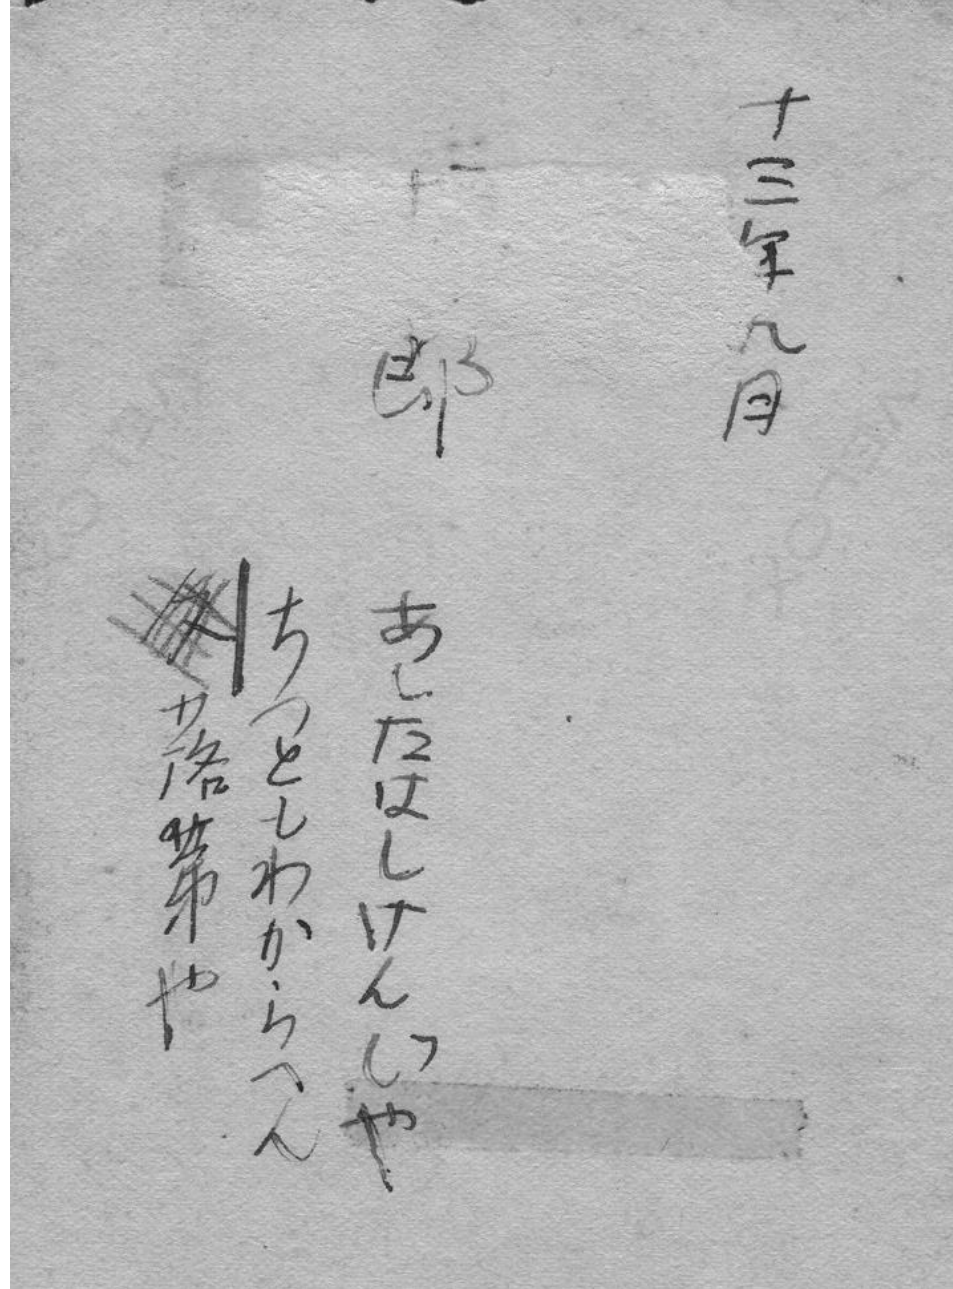 十三年九月
郎
あしたはしけんいや
ちつともわからへん
落第や